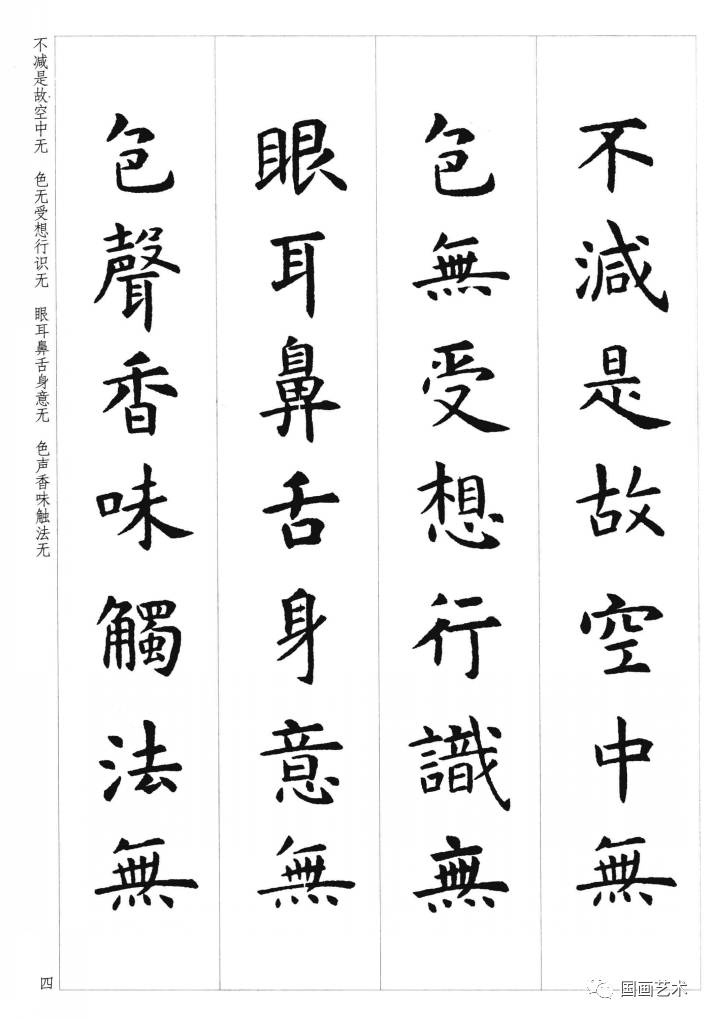 不減是故空中無
色無受想行識無
眼耳鼻舌身意無
色聲香味觸法無
不减是故空中无　色无受想行识无　眼耳鼻舌身意无　色声香味触法无
四
国画艺术